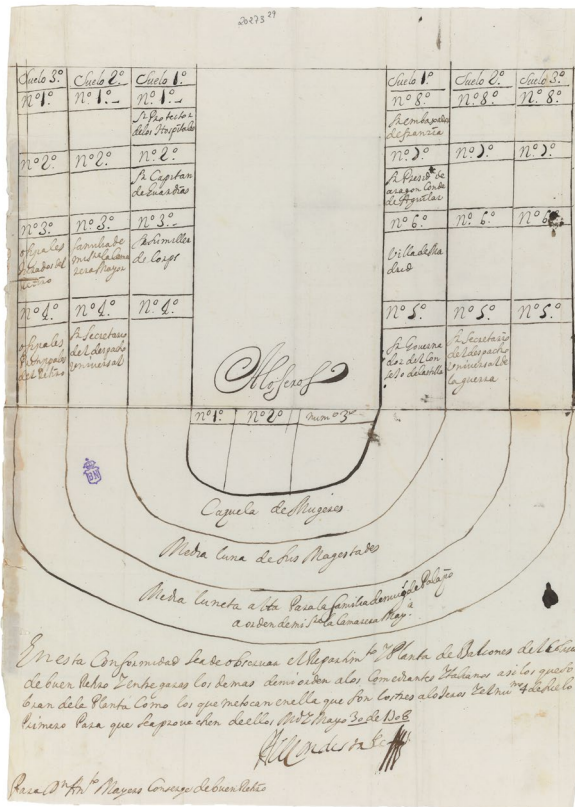 20273 29
Suelo 3º Suelo 2º Suelo 1º
Nº 1º. Nº 1º. Nº 1º.
Sr Protector
de los Hospitales
Nº 2º. Nº 2º. Nº 2º.
Sr Capitan
de Guardia
Nº 3º. Nº 3º. Nº 3º.
ofiziales
del Retiro
familia de
mi Sra la Cama
rera Mayor
Sr Sumiller
de Corps
Nº 4º. Nº 4º. Nº 4º.
ofiziales
Prinzipales
del Retiro
Sr Secretario
del despacho
vniversal
Suelo 1º Suelo 2º Suelo 3º
Nº 8º. Nº 8º. Nº 8º.
Sr embajador
de franzia
Nº 7º. Nº 7º. Nº 7º.
Sr Presidte de
aragon Conde
de Aguilar
Nº 6º. Nº 6º. Nº 6º
Villa de Ma
drid
Nº 5º. Nº 5º. Nº 5º.
Sr Governa
dor del Con
sejo de Castilla
Sr Secretario
del despacho
vniversal de
la guerra
Aloxeros
Nº 1º. Nº 2º. num º 3º
Cazuela de Mugeres
Media luna de Sus Magestades
Media luneta alta Para la familia de Palazio
a orden de mi Sra la Camarera Mayr
En esta Conformidad Sea de observar el Repartimto y Planta de Balcones del
de buen Retiro y entregar los demas de mi orden a los Comediantes Italianos asi los que
de la Planta Como los que me tocan en ella que son los tres aloxeros y el num 4 de suelo
Primero Para que se aprovechen de ellos Md y Mayo 30 de 1708
Para Dn Antto Mayers Conserge de buen Retiro